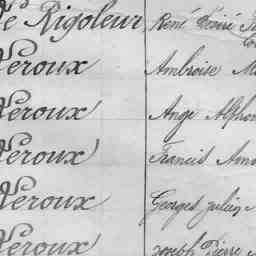 Le Rigoleur René Désiré
Leroux Ambroise
Leroux Ange Alphon
Leroux Francis
Leroux Georges Julien
Leroux Joseph Pierre